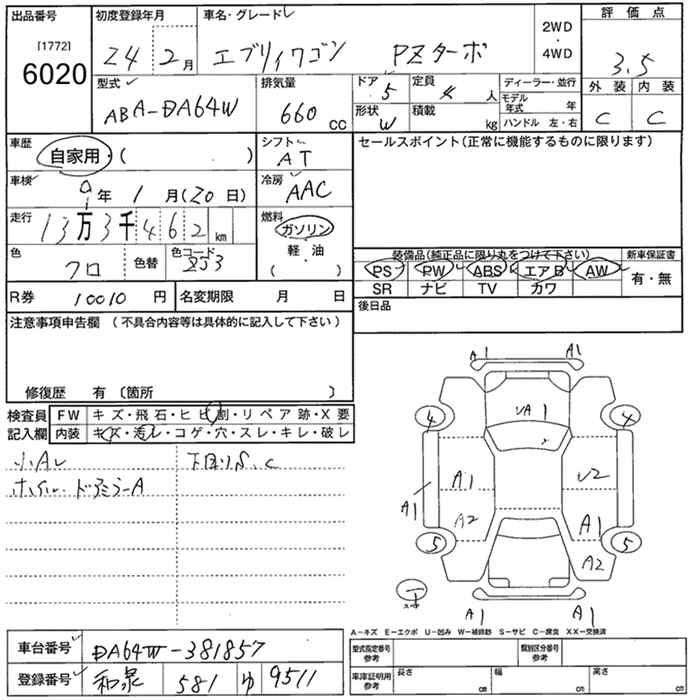 出品番号 初度登録年月 車名・グレード 2WD・4WD 評価点
[1772]
6020 24年 2月 エブリィワゴン PZターボ 3.5
型式 排気量 ドア 定員 ディーラー・並行 外装 内装
ABA-DA64W 660cc 5 4人 モデル年式 年 C C
形状 積載 ハンドル 左・右
W kg
車歴 シフト セールスポイント(正常に機能するものに限ります)
自家用・( ) AT
車検 冷房
年 1月(20日) AAC
走行 燃料
13万3千462km ガソリン
軽・油
( )
色 色替 色コード 装備品(純正品に限り丸をつけて下さい) 新車保証書
クロ ZJ3 PS PW ABS エアB AW 有・無
SR ナビ TV カワ
R券 10010円 名変期限 月 日 後日品
注意事項申告欄(不具合内容等は具体的に記入して下さい)
修復歴 有〔箇所 〕
検査員記入欄 FW キズ・飛石・ヒビ割・リペア跡・X要
内装 キズ・汚レ・コゲ・穴・スレ・キレ・破レ
小A 下回りS、C
ホイール・ドアミラーA
A1 A1
4 4
A1
A1 U2
A1
A2 A1
5 5
A2
A1 A1
A-キズ E-エクボ U-凹み W-補修跡 S-サビ C-腐食 XX-交換済
車台番号 DA64W-381857
登録番号 和泉 581 ゆ 9511
型式指定番号 参考 類別区分番号 参考
車庫証明用 参考 長さ cm 幅 cm 高さ cm